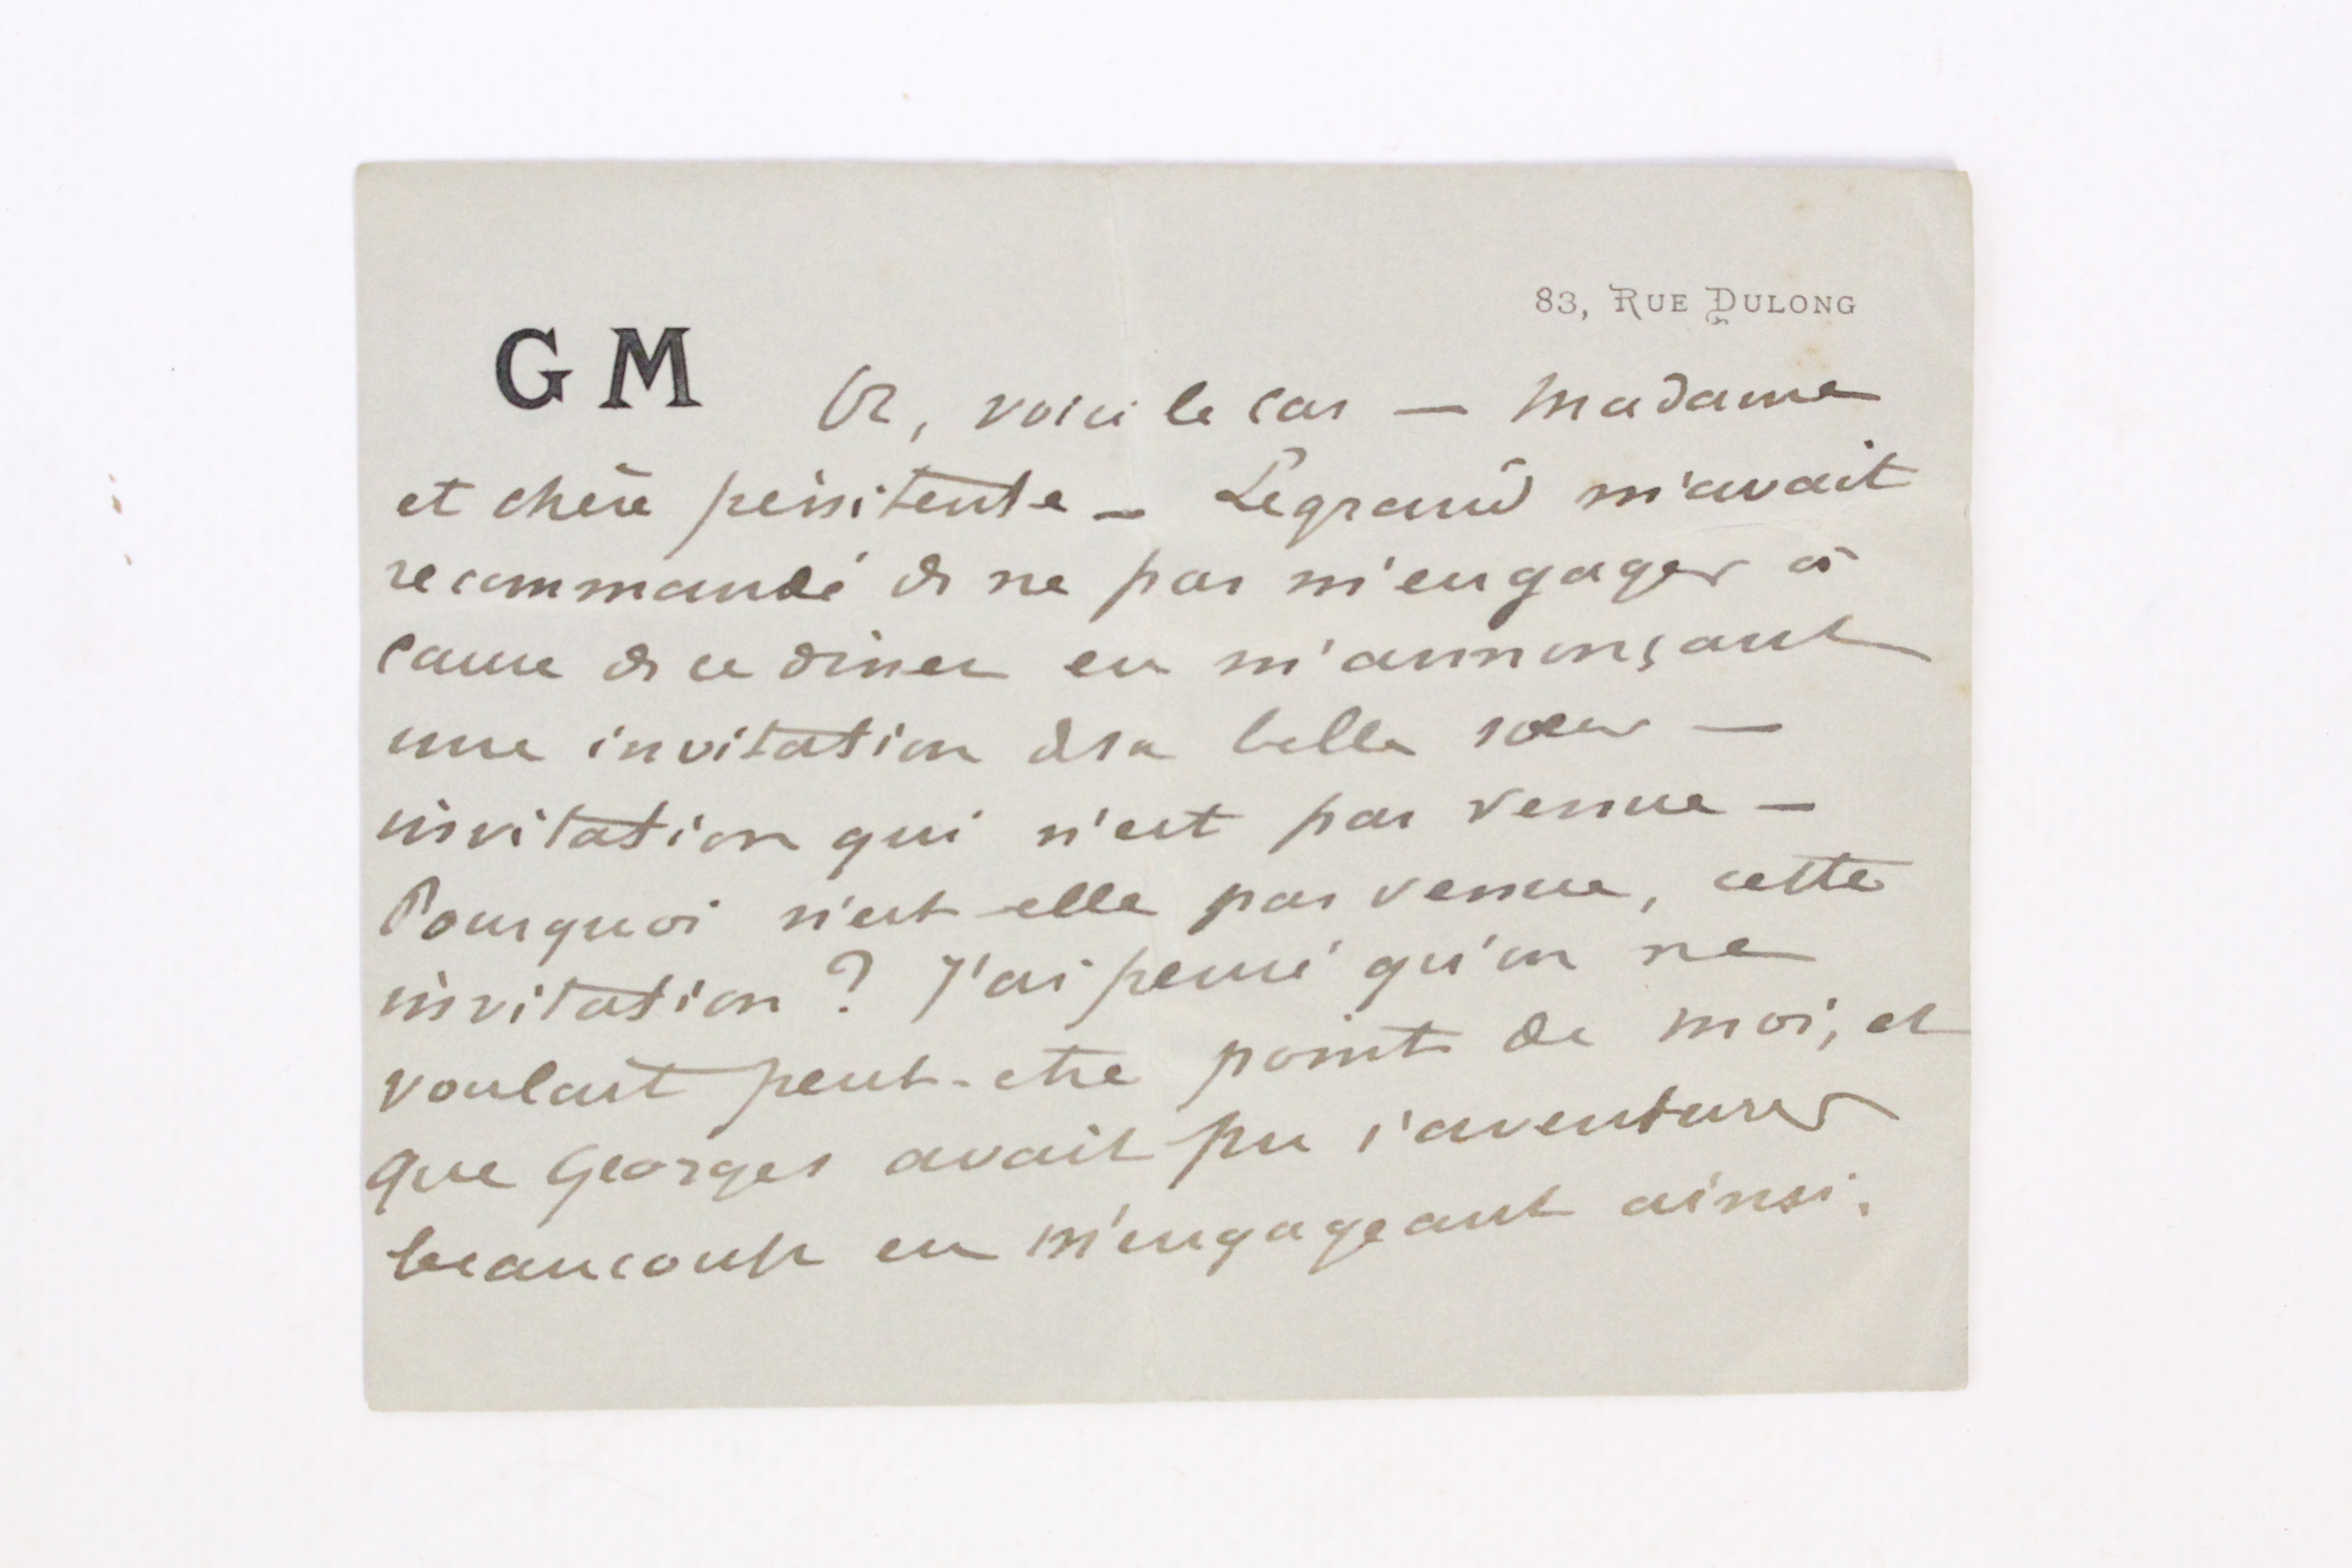 83, RUE DULONG
GM
Or, voici le cas — Madame
et chère pénitente — Legrand m'avait
recommandé de ne pas m'engager à
cause de ce diner en m'annonçant
une invitation de sa belle sœur —
invitation qui n'est pas venue —
Pourquoi n'est-elle pas venue, cette
invitation ? J'ai pensé qu'on ne
voulait peut-etre point de moi, et
que Georges avait pu s'aventurer
beaucoup en m'engageant ainsi.